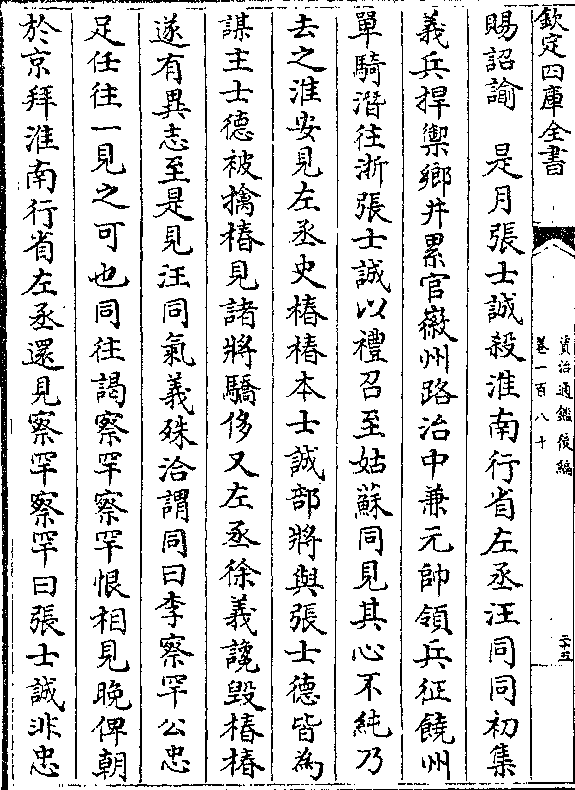 欽定四庫全書
資治通鑑後編
卷一百八十
二十五
賜詔諭　是月張士誠殺淮南行省左丞汪同同初集
義兵捍禦鄉井累官徽州路治中兼元帥領兵征饒州
單騎潛往浙張士誠以禮召至姑蘇同見其心不純乃
去之淮安見左丞史椿椿本士誠部將與張士德皆為
謀主士德被擒椿見諸將驕侈又左丞徐義讒毀椿椿
遂有異志至是見汪同氣義殊洽謂同曰李察罕公忠
足任往一見之可也同往謁察罕察罕恨相見晚俾朝
於京拜淮南行省左丞還見察罕察罕曰張士誠非忠